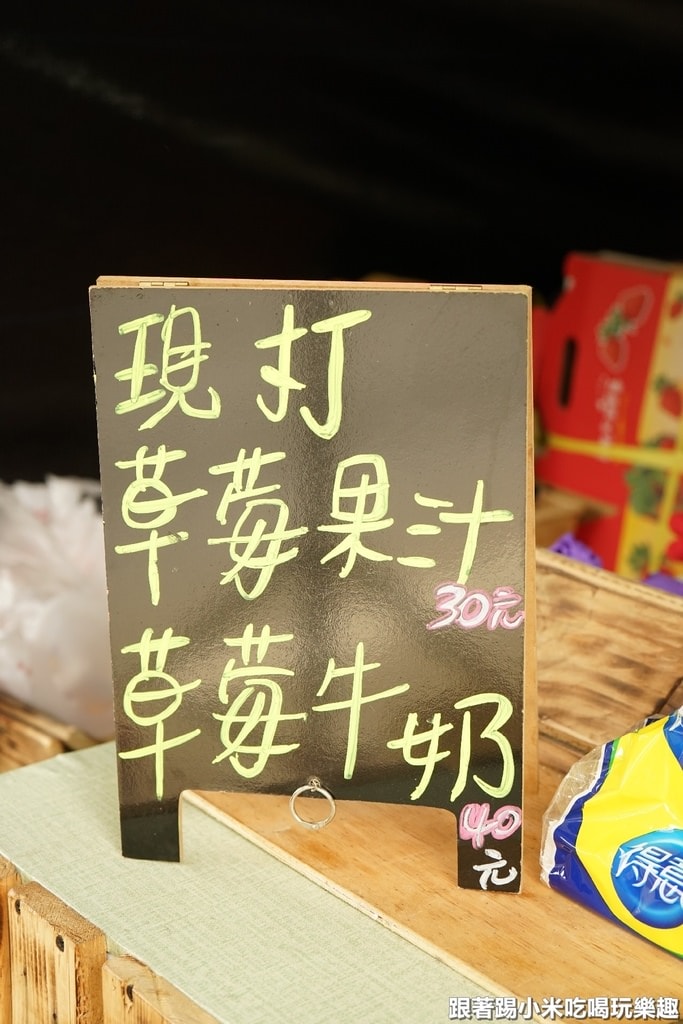 現打
草莓果汁
30元
草莓牛奶
40
元
得意
跟著踢小米吃喝玩樂趣